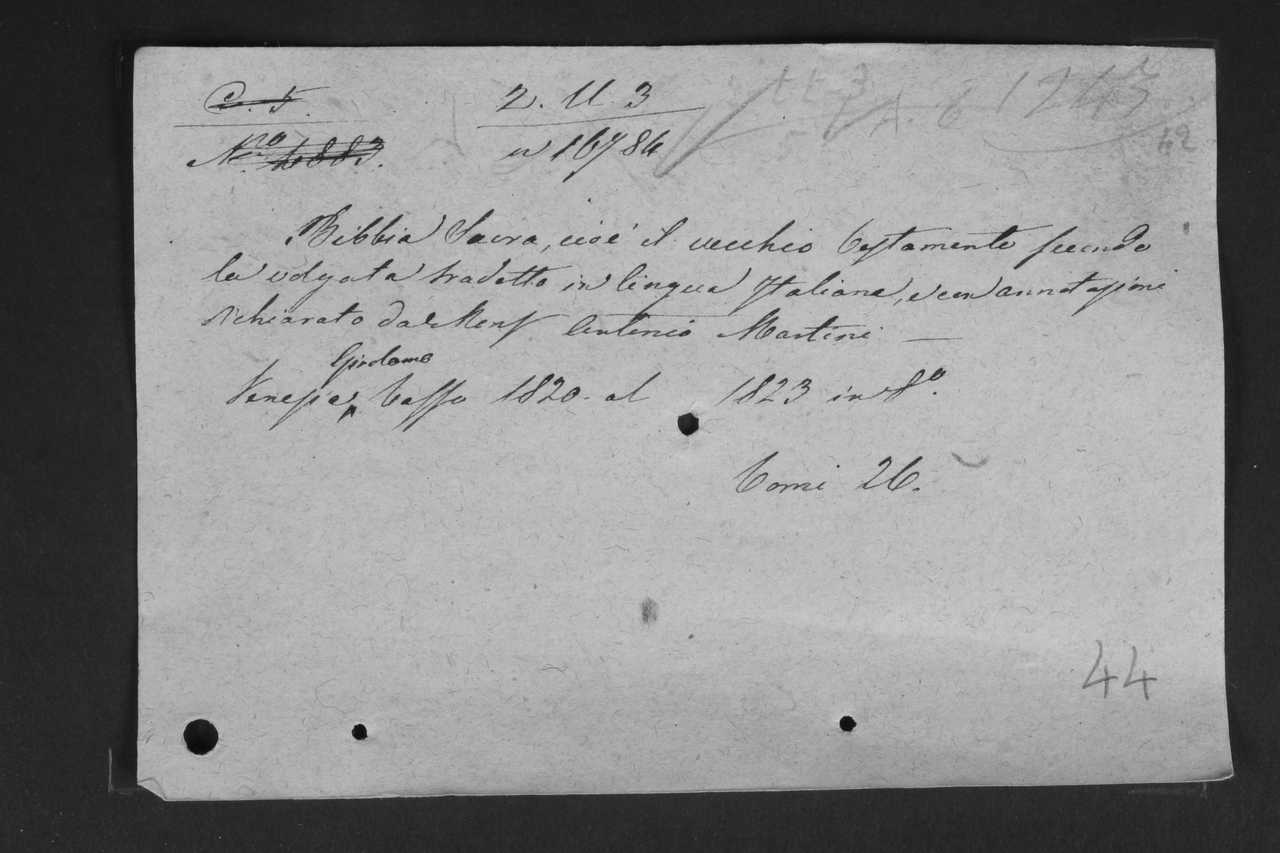 C. 5. 2. U. 3
Nro 4883. n 16784
42
Bibbia Sacra, cioè il vecchio Testamento secondo
la volgata tradotto in lingua Italiana, e con annotazioni
dichiarato da Monsr Antonio Martini —
Girolamo
Venezia, Tasso 1820. al 1823 in 8o.
Tomi 26.
44